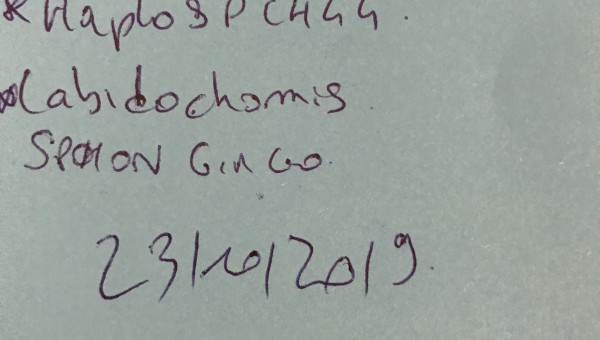 * Haplo S P CH44.
Labidochomis
SPHON GinGo.
23/10/2019.